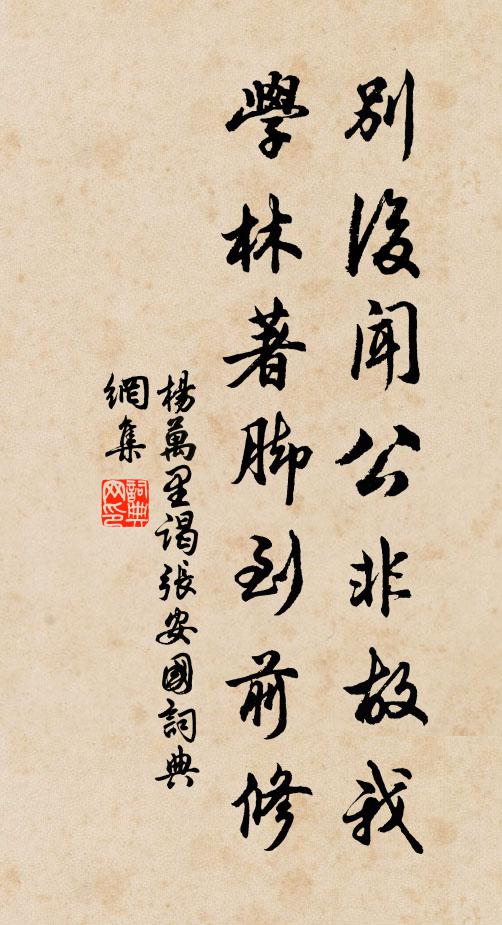 別後聞公非故我
學林著脚到前修
楊萬里謁張安國詞典
網集
詞典網印